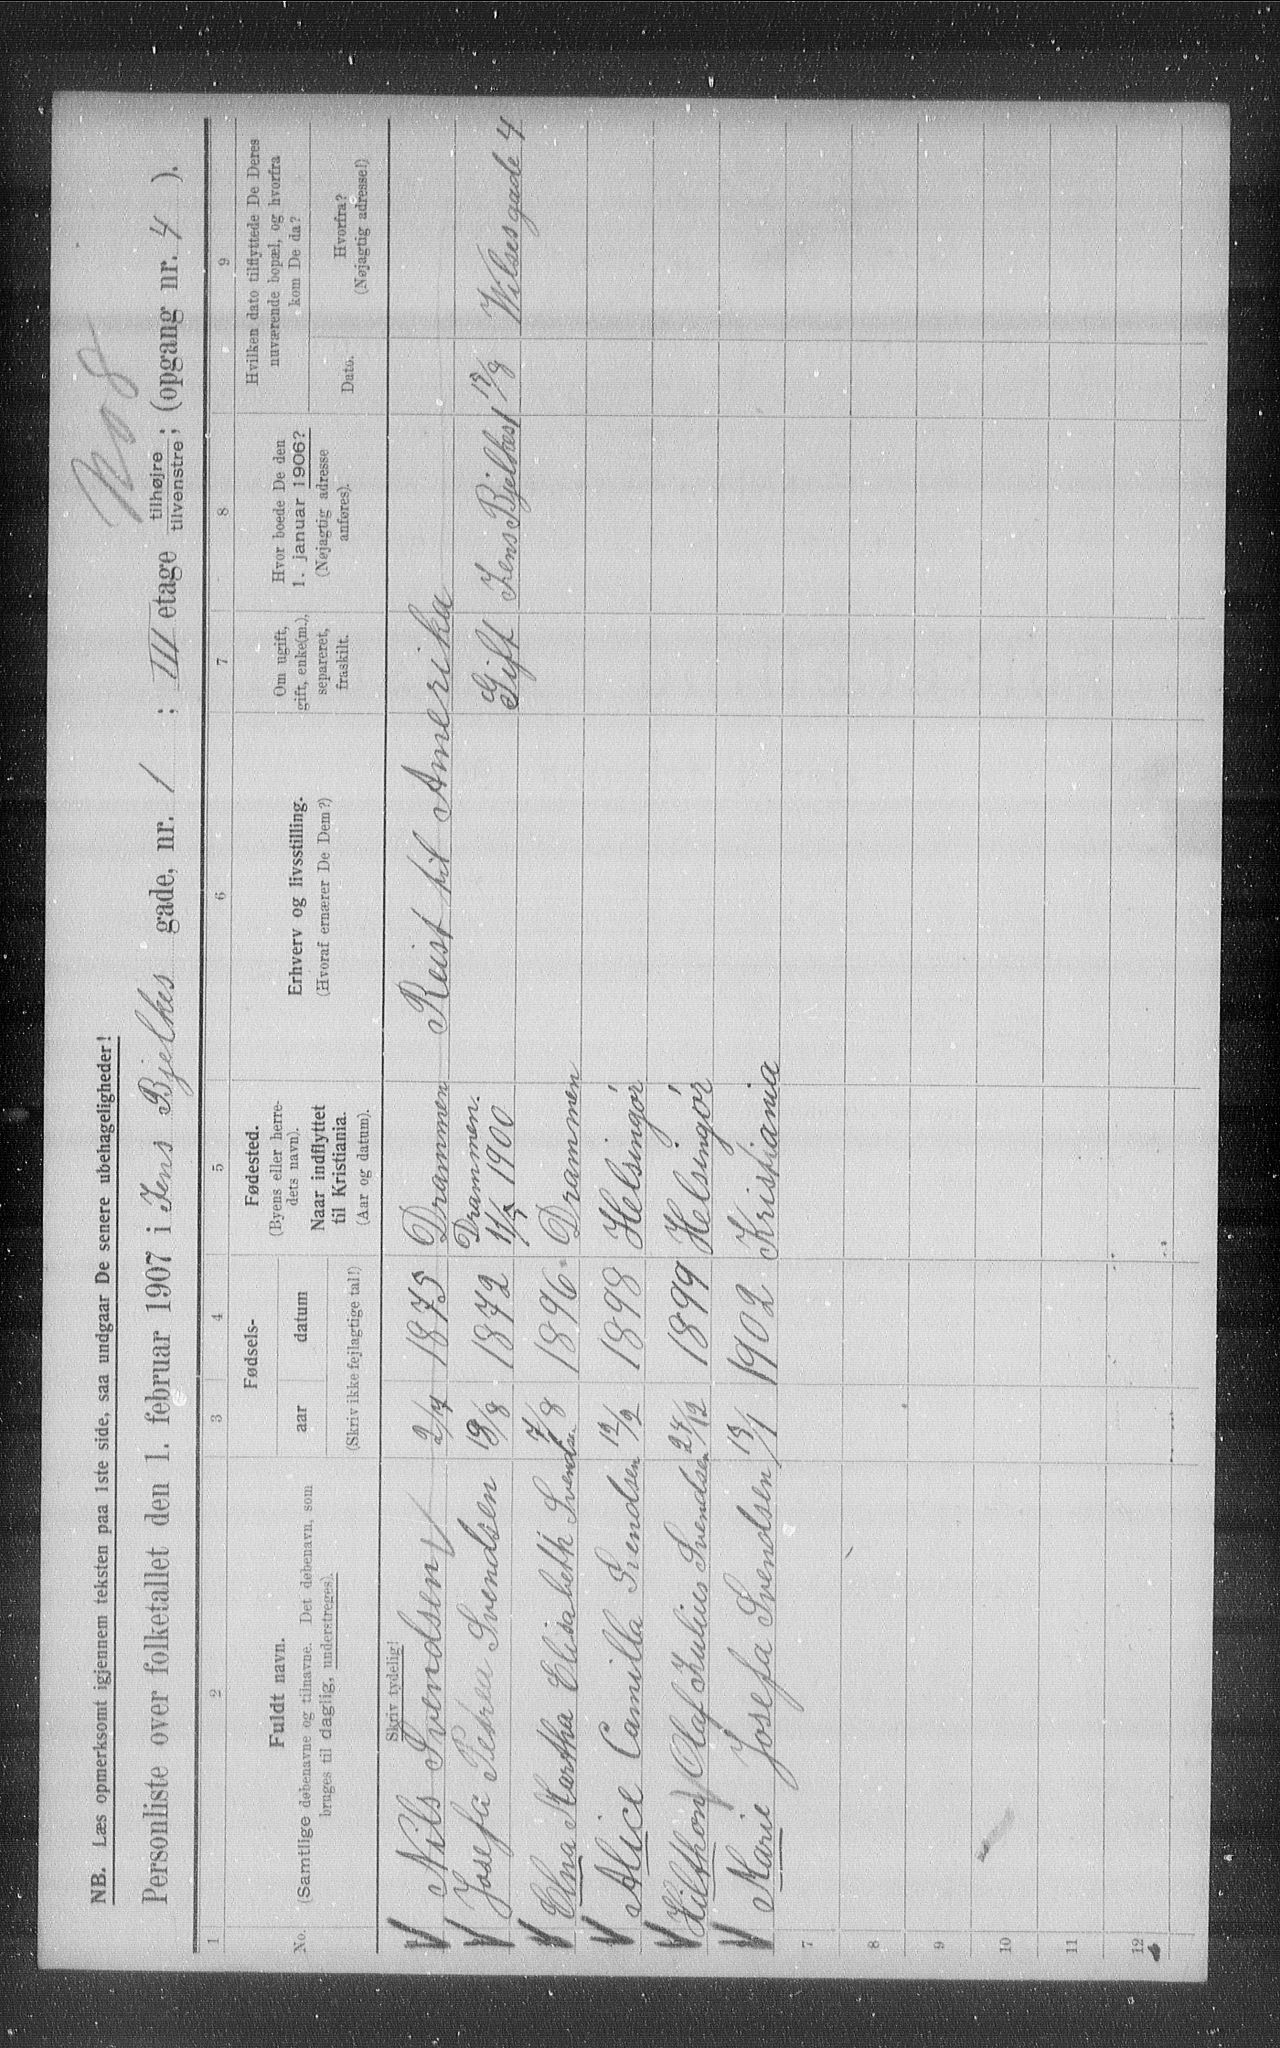 No 8
NB. Læs opmerksomt igjennem teksten paa 1ste side, saa undgaar De senere ubehageligheder!
Personliste over folketallet den 1. februar 1907 i Jens Bjelkes gade, nr. 1 ; III etage tilhøjre tilvenstre; (opgang nr. 4 ).
1 2 3 4 5 6 7 8 9
No.
Fuldt navn.
(Samtlige døbenavne og tilnavne. Det døbenavn, som
bruges til daglig, understreges).
Fødsels-
aar datum
(Skriv ikke fejlagtige tal!)
Fødested.
(Byens eller herre-
dets navn).
Naar indflyttet
til Kristiania.
(Aar og datum).
Erhverv og livsstilling.
(Hvoraf ernærer De Dem?)
Om ugift,
gift, enke(m.),
separeret,
fraskilt.
Hvor boede De den
1. januar 1906?
(Nøjagtig adresse
anføres).
Hvilken dato tilflyttede De Deres
nuværende bopæl, og hvorfra
kom De da?
Dato.
Hvorfra?
(Nøjagtig adresse!)
Skriv tydelig!
Nils Svendsen 2/4 1875 Drammen Reist til Amerika
Josefa Petrea Svendsen 19/8 1872 Drammen. 1900 Gift Jens Bjelkes 1 12/9 Wilses gade 4
Elna Martha Elisabeth Svendsen 7/8 1896 Drammen
Alice Camilla Svendsen 12/2 1898 Helsingør
Hilthon Olaf Julius Svendsen 24/12 1899 Helsingør
Marie Josefa Svendsen 13/1 1902 Kristiania
7
8
9
10
11
12